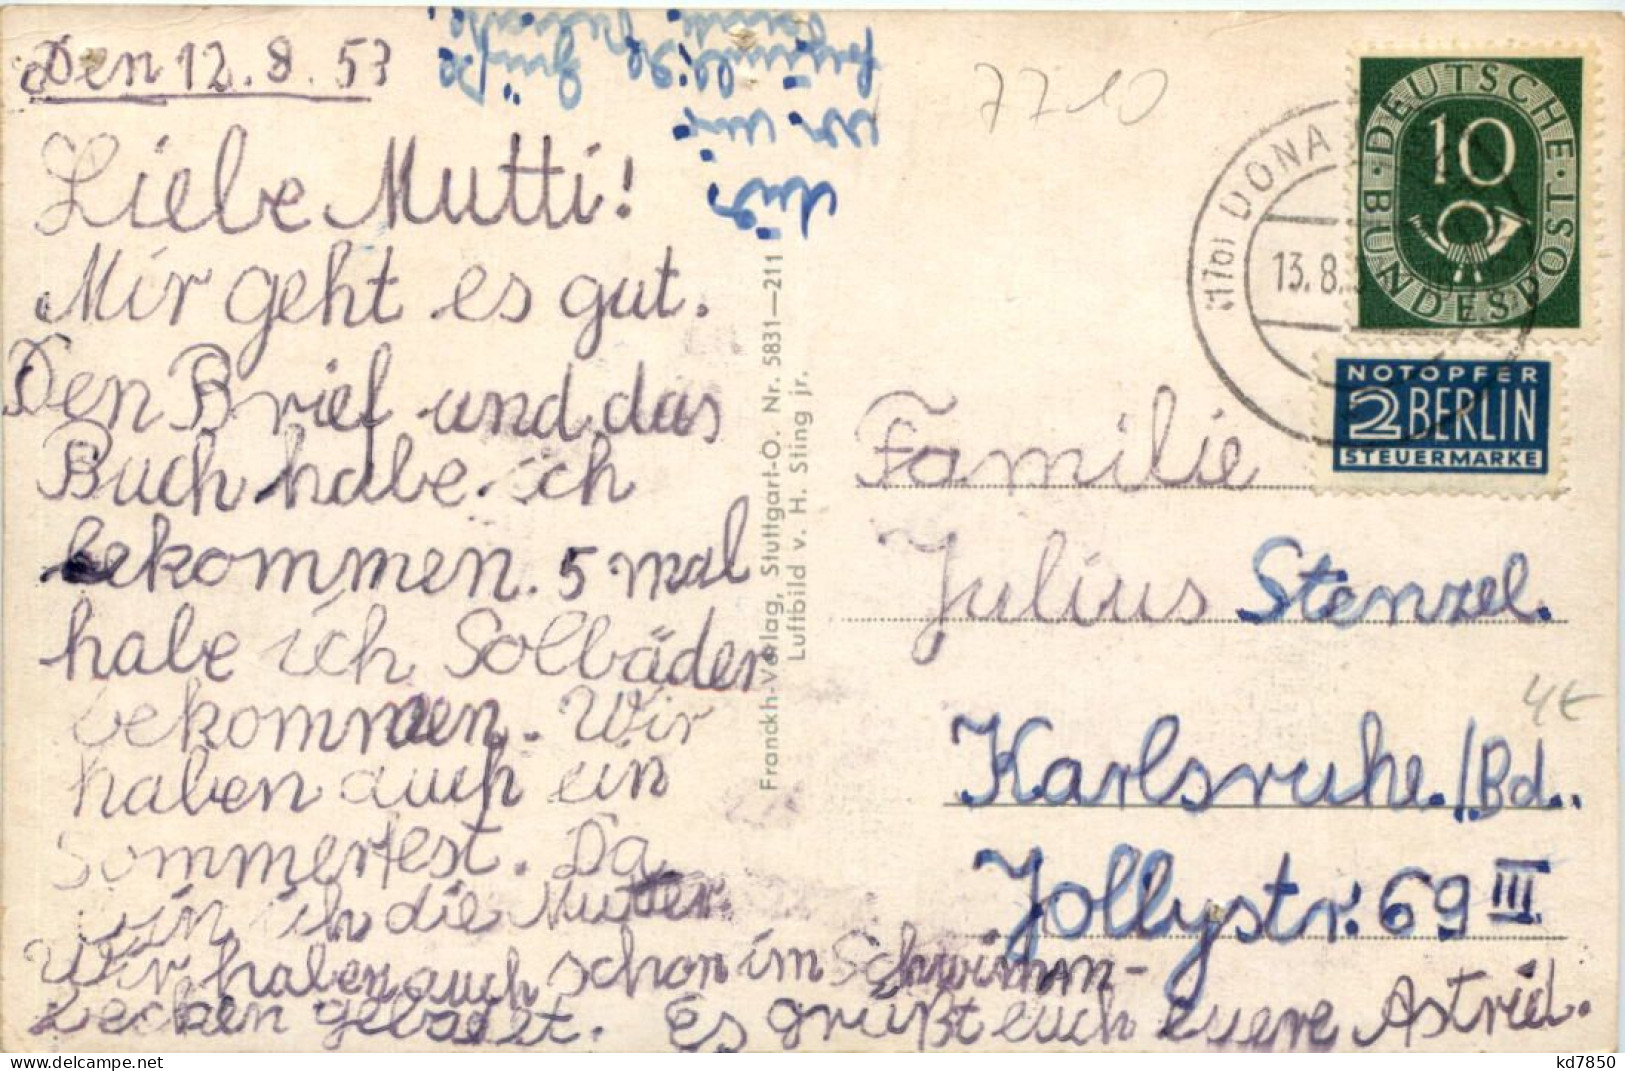 Den 12.8.53
Liebe Mutti!
Mir geht es gut.
Den Brief und das
Buch habe ich
bekommen. 5 mal
habe ich Solbäder
bekommen. Wir
haben auch ein
Sommerfest. Da
bin ich die Mutter.
Wir haben auch schon im Schwimm-
becken gebadet. Es grüßt euch euere Astrid.
Franckh-Verlag, Stuttgart-O. Nr. 5831—211
Luftbild v. H. Sting jr.
7710
(17b) DONA
13.8.5
DEUTSCHE BUNDESPOST
10
NOTOPFER
2 BERLIN
STEUERMARKE
Familie
Julius Stenzel.
4€
Karlsruhe./Bd..
Jollystr. 69 III
hkd7850.delcampe.net
kd7850